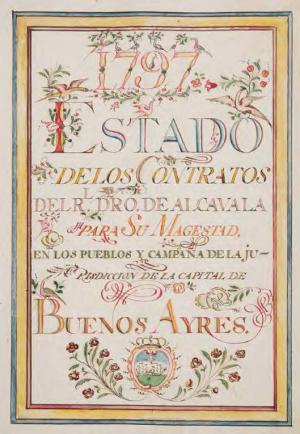 1797
ESTADO
DE LOS CONTRATOS
DEL RL. DRO. DE ALCAVALA
PARA SU MAGESTAD,
EN LOS PUEBLOS Y CAMPAÑA DE LA JU-
RISDICCION DE LA CAPITAL DE
BUENOS AYRES.